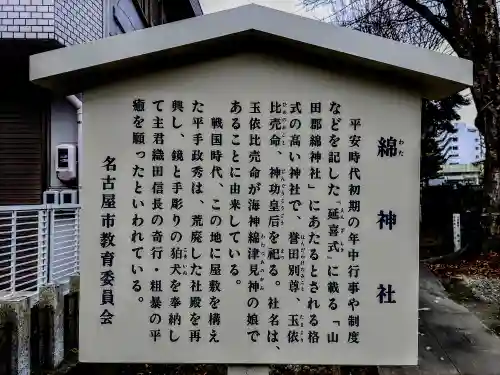 綿神社
わた
平安時代初期の年中行事や制度
などを記した『延喜式』に載る「山
田郡綿神社」にあたるとされる格
式の高い神社で、誉田別尊、玉依
比売命、神功皇后を祀る。社名は、
玉依比売命が海神綿津見神の娘で
あることに由来している。
戦国時代、この地に屋敷を構え
た平手政秀は、荒廃した社殿を再
興し、鏡と手彫りの狛犬を奉納し
て主君織田信長の奇行・粗暴の平
癒を願ったといわれている。
名古屋市教育委員会